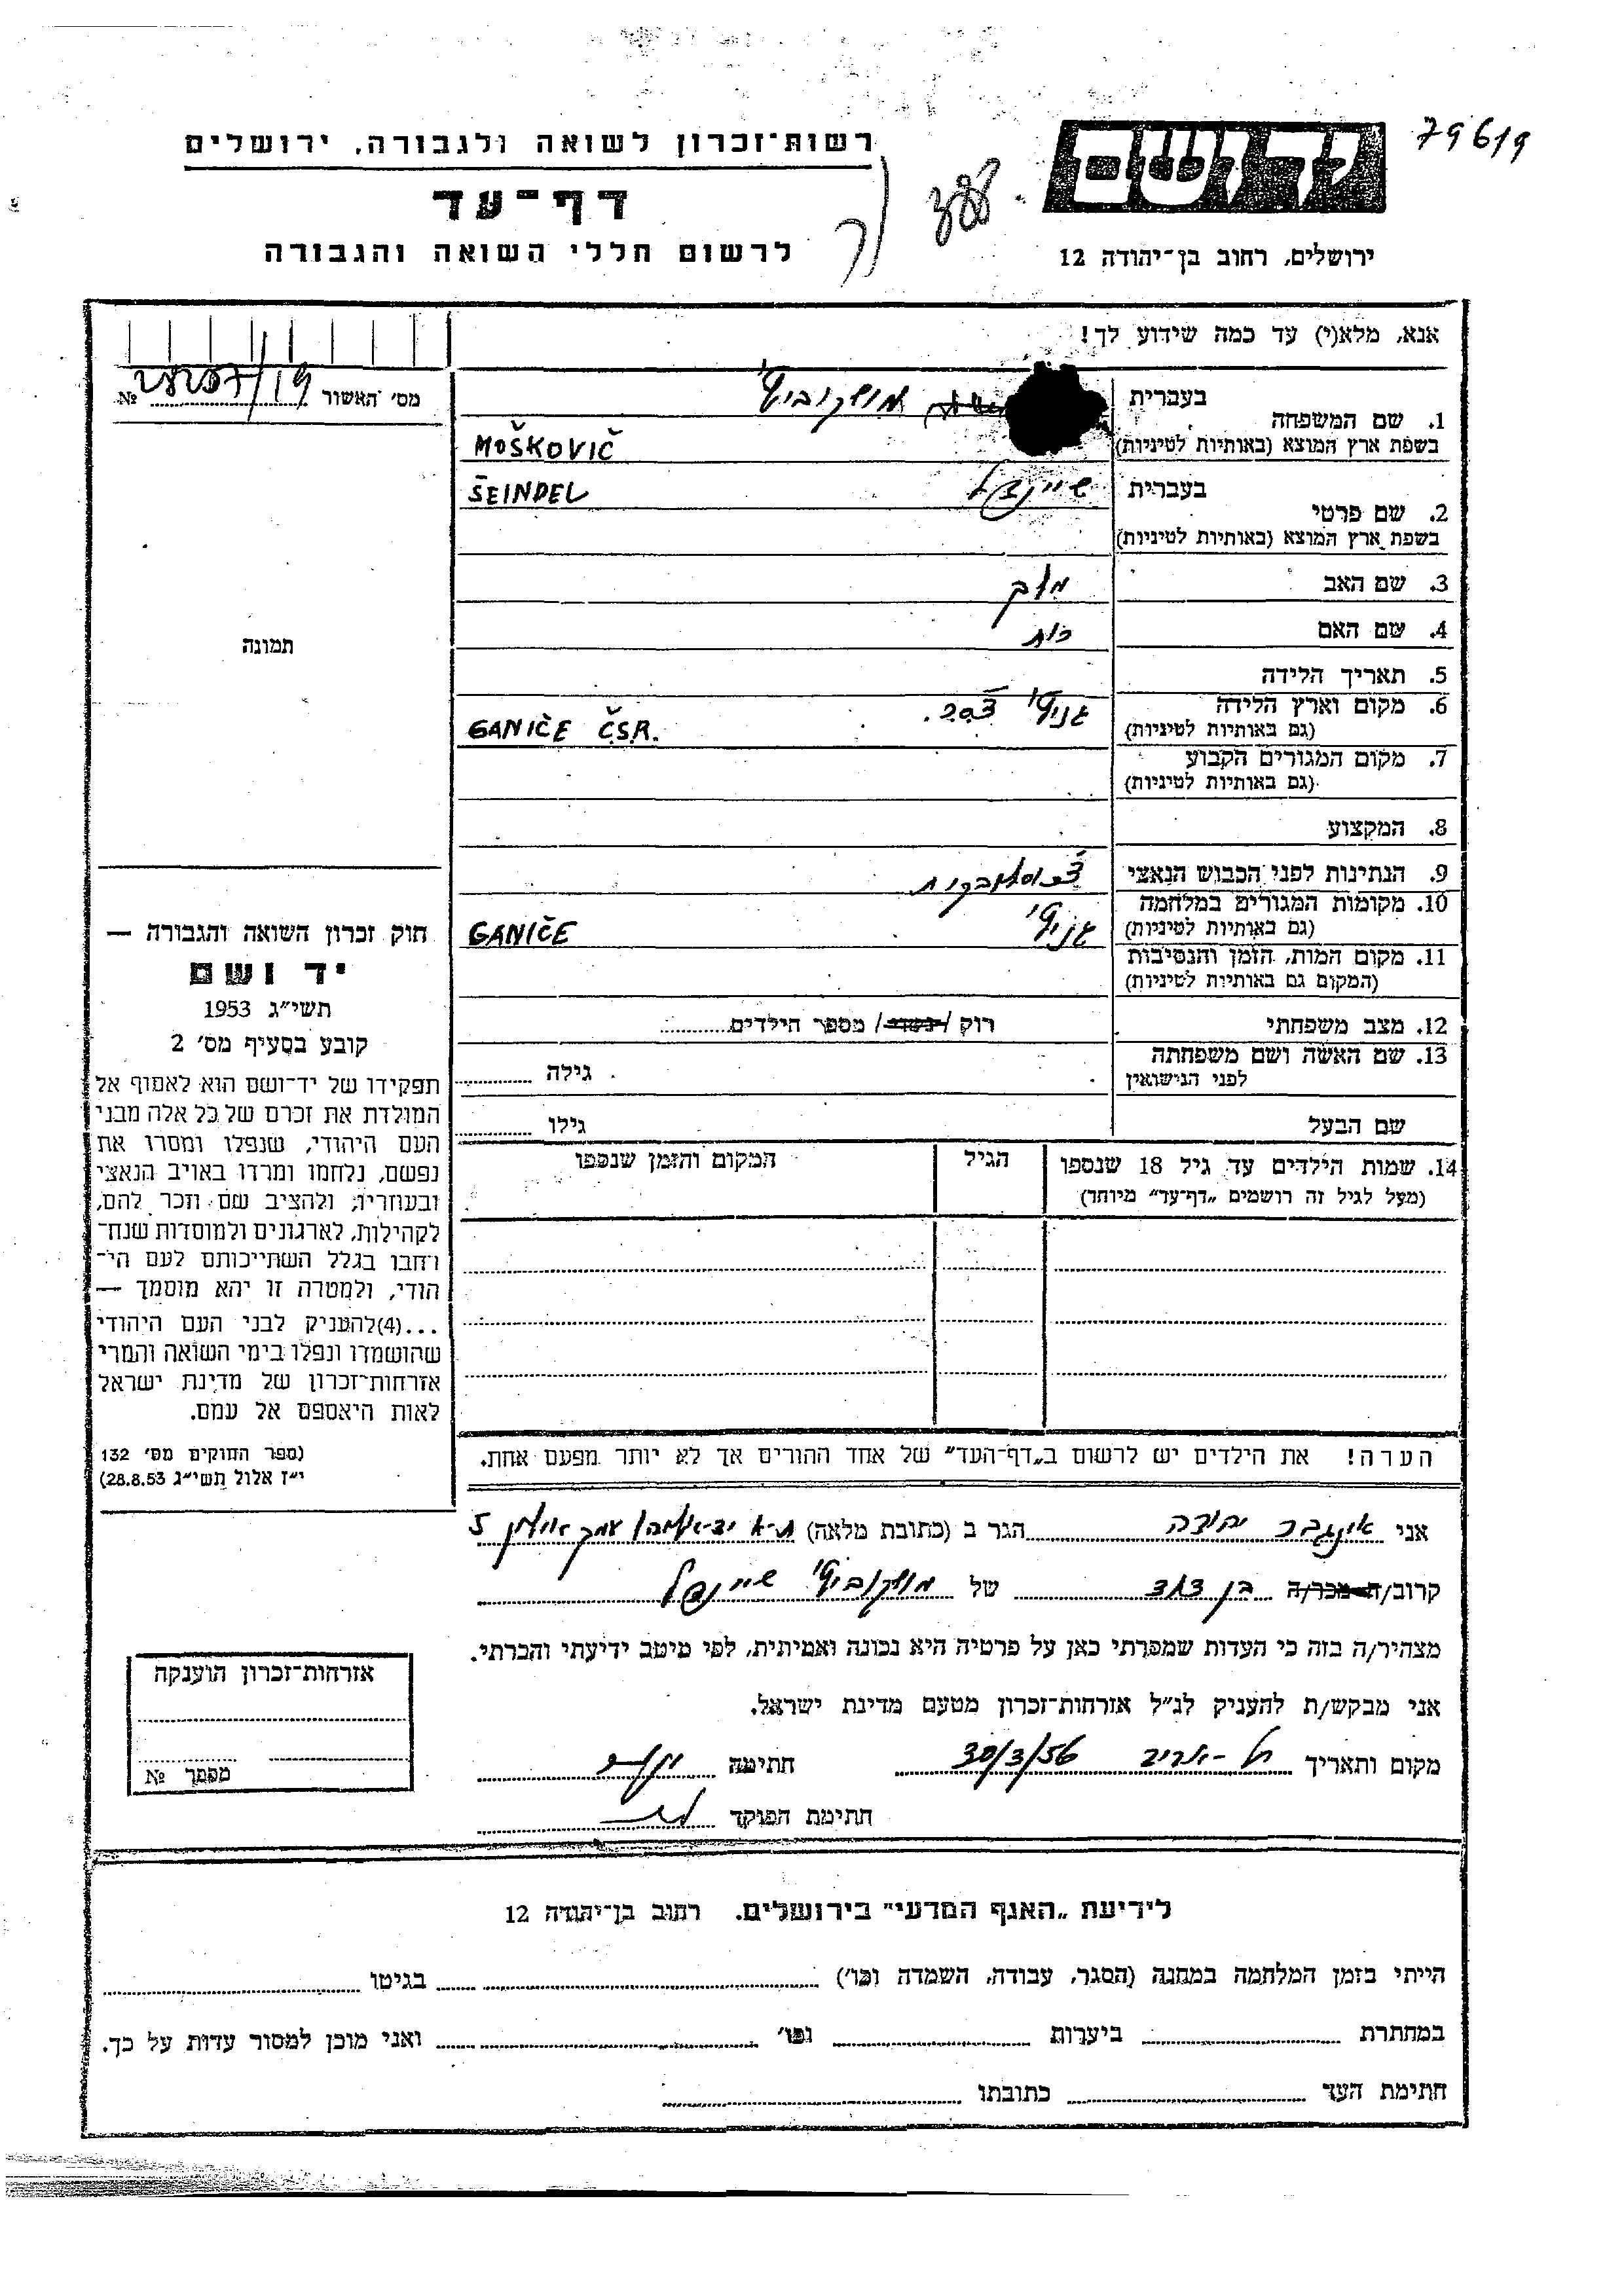 79619
יד ושם
ירושלים, רחוב בן־יהודה 12
רשות־זכרון לשואה ולגבורה, ירושלים
דף־עד
לרשום חללי השואה והגבורה
אנא, מלא(י) עד כמה שידוע לך!
מס׳ האשור №
1. שם המשפחה בעברית מושקוביץ'
בשפת ארץ המוצא (באותיות לטיניות) MOŠKOVIČ
2. שם פרטי בעברית שיינדל ŠEINDEL
בשפת ארץ המוצא (באותיות לטיניות)
3. שם האב
4. שם האם
5. תאריך הלידה
6. מקום וארץ הלידה גניץ' צ'.ס.ר. GANIČE Č.S.R.
(גם באותיות לטיניות)
7. מקום המגורים הקבוע
(גם באותיות לטיניות)
8. המקצוע
9. הנתינות לפני הכבוש הנאצי
10. מקומות המגורים במלחמה גניץ' GANIČE
(גם באותיות לטיניות)
11. מקום המות, הזמן והנסיבות
(המקום גם באותיות לטיניות)
12. מצב משפחתי רוק / נשוי / מספר הילדים
13. שם האשה ושם משפחתה
לפני הנישואין גילה
שם הבעל גילו
14. שמות הילדים עד גיל 18 שנספו הגיל המקום והזמן שנספו
(מעל לגיל זה רושמים „דף־עד״ מיוחד)
הערה! את הילדים יש לרשום ב„דף־העד״ של אחד ההורים אך לא יותר מפעם אחת.
תמונה
חוק זכרון השואה והגבורה —
יד ושם
תשי״ג 1953
קובע בסעיף מס׳ 2
תפקידו של יד־ושם הוא לאסוף אל
המולדת את זכרם של כל אלה מבני
העם היהודי, שנפלו ומסרו את
נפשם, נלחמו ומרדו באויב הנאצי
ובעוזריו, ולהציב שם וזכר להם,
לקהילות, לארגונים ולמוסדות שנח־
רחבו בגלל השתייכותם לעם הי־
הודי, ולמטרה זו יהא מוסמך —
...(4)להעניק לבני העם היהודי
שהושמדו ונפלו בימי השואה והמרי
אזרחות־זכרון של מדינת ישראל
לאות היאספם אל עמם.
(ספר החוקים מס׳ 132
י״ז אלול תשי״ג 28.8.53)
אני יהודה הגר ב (כתובת מלאה) ת-א יד-אליהו
קרוב/ה מכר/ה בן דוד של מושקוביץ' שיינדל
מצהיר/ה בזה כי העדות שמסרתי כאן על פרטיה היא נכונה ואמיתית, לפי מיטב ידיעתי והכרתי.
אני מבקש/ת להעניק לנ״ל אזרחות־זכרון מטעם מדינת ישראל.
מקום ותאריך תל-אביב 30/3/56 חתימה
חתימת הפוקד
אזרחות־זכרון הוענקה
מספר №
לידיעת „האגף המדעי״ בירושלים. רחוב בן־יהודה 12
הייתי בזמן המלחמה במחנה (הסגר, עבודה, השמדה וכו׳) בגיטו
במחתרת ביערות וכו׳ ואני מוכן למסור עדות על כך.
חתימת העד כתובתו